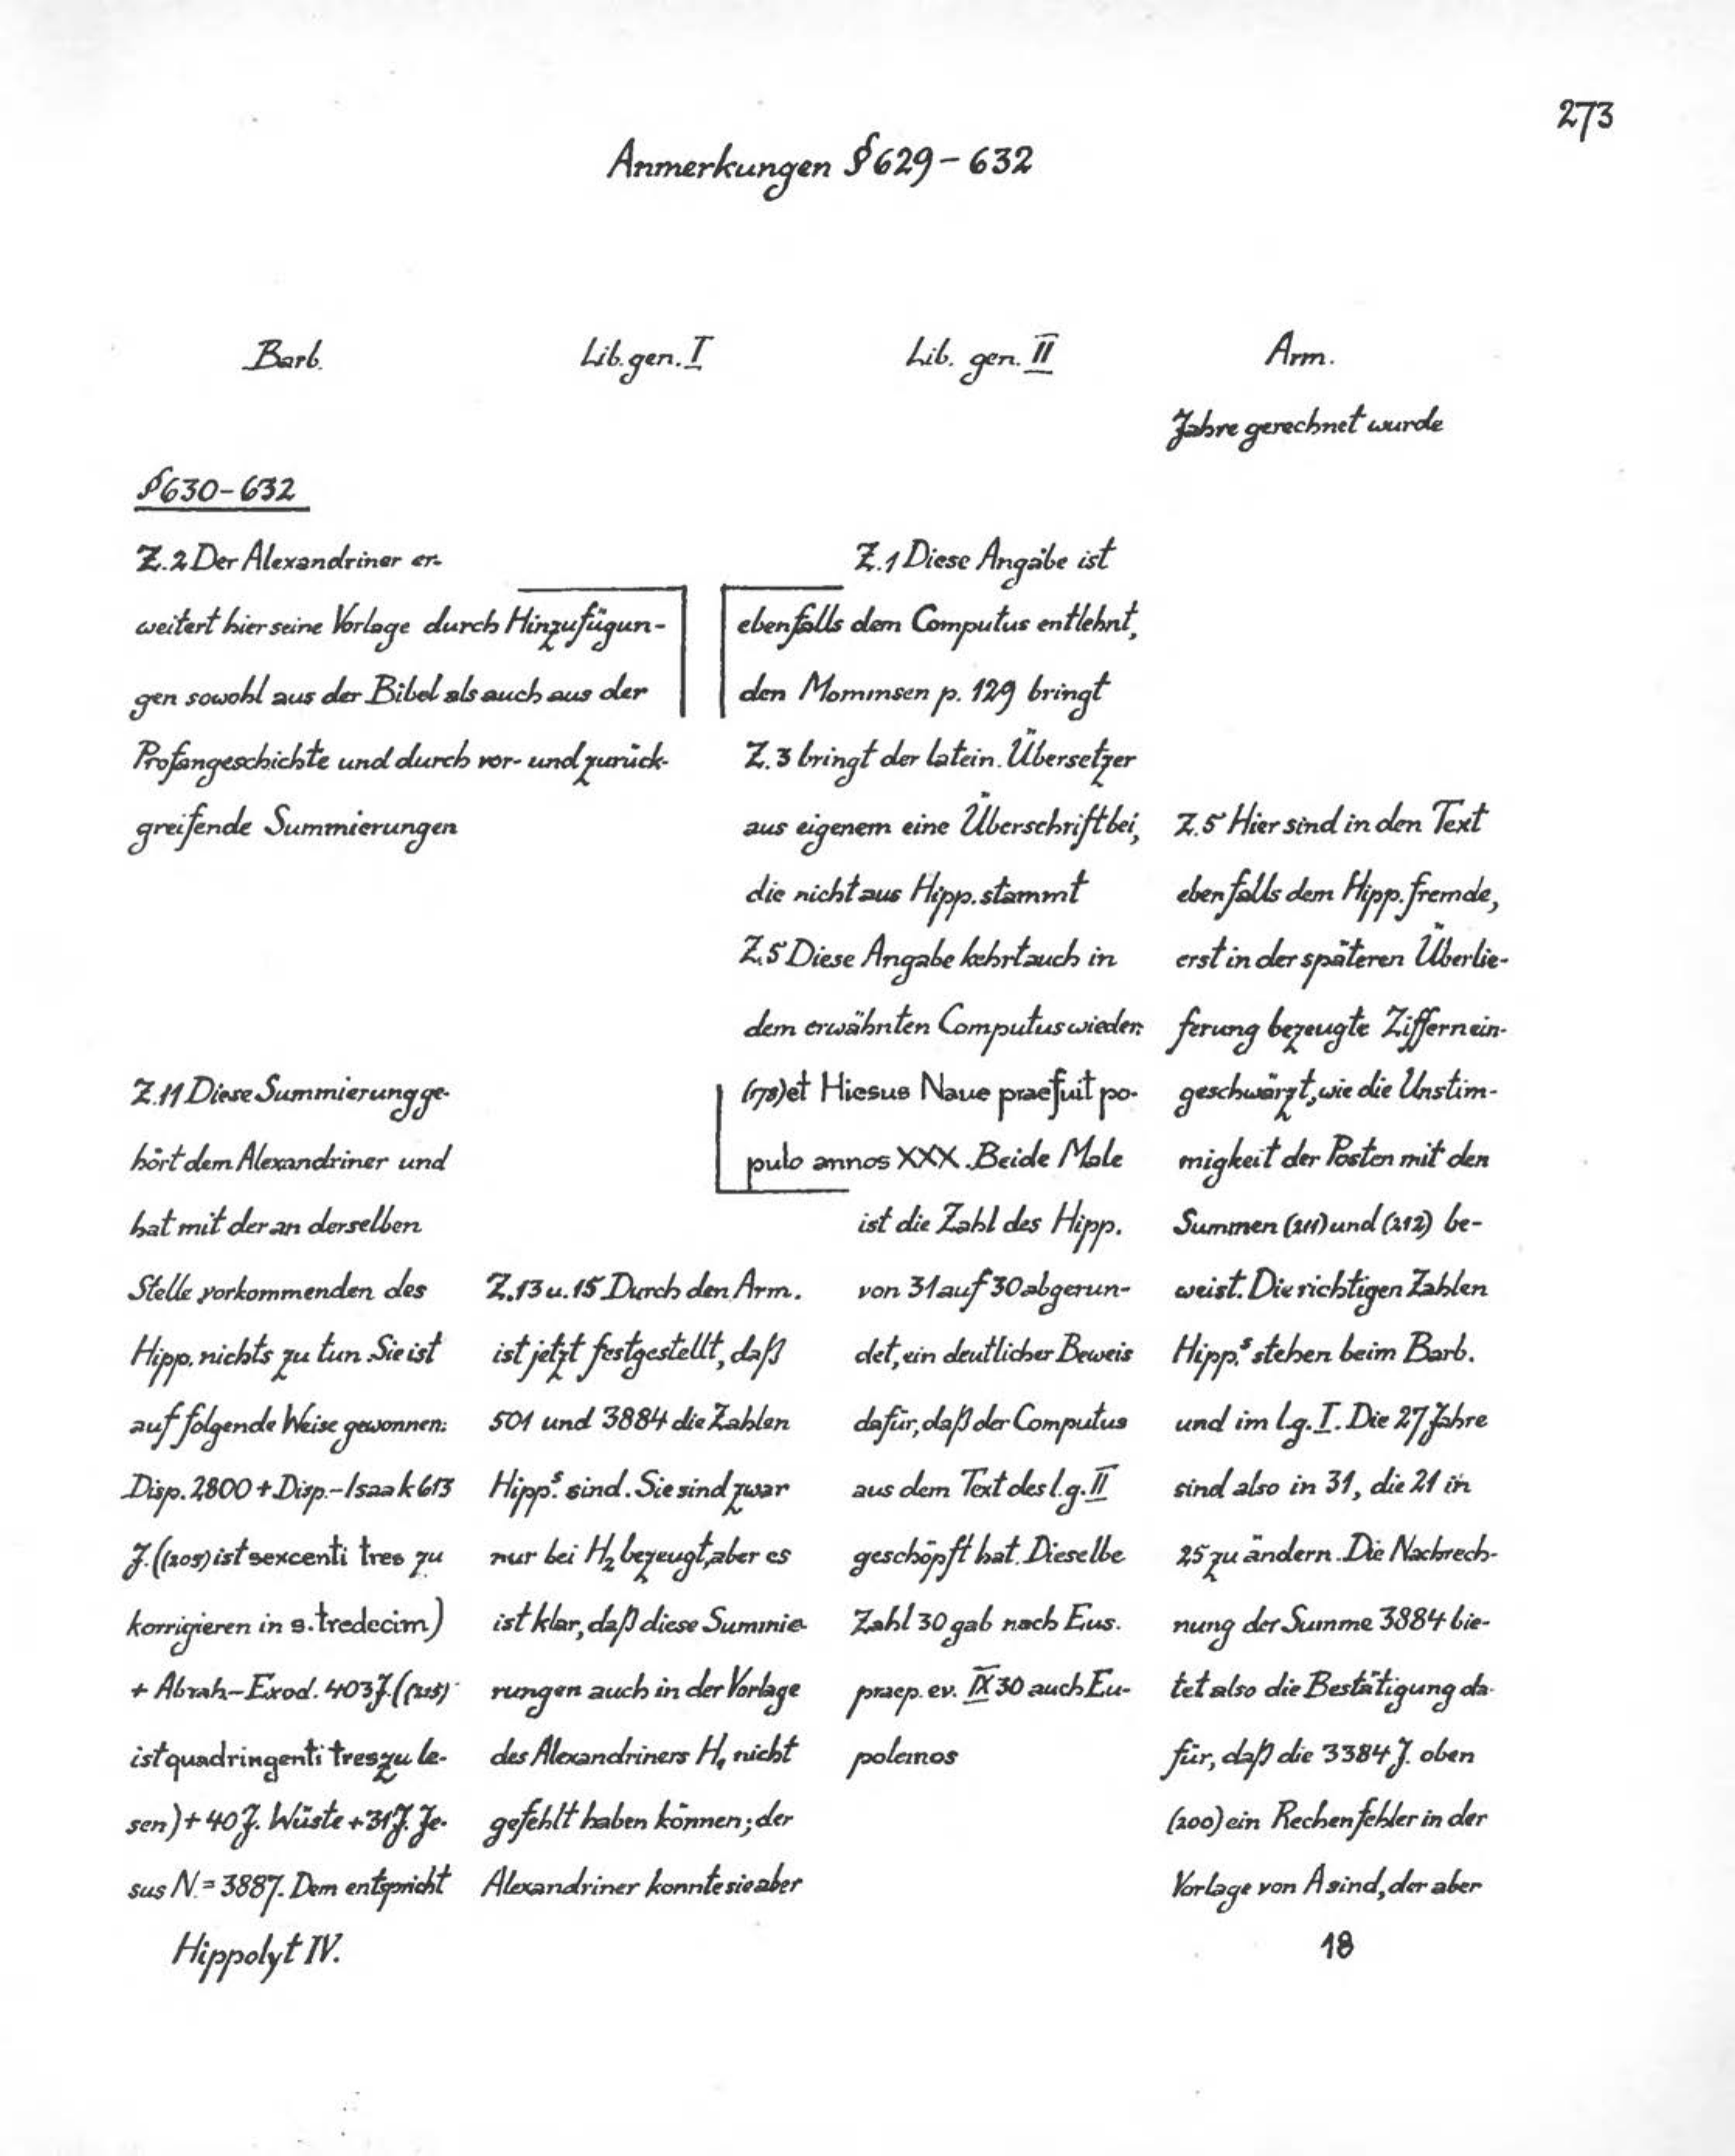 273
Anmerkungen §629-632
Barb.
Lib. gen. I
Lib. gen. II
Arm.
Jahre gerechnet wurde
§630-632
Z. 2 Der Alexandriner er-
weitert hier seine Vorlage durch Hinzufügun-
gen sowohl aus der Bibel als auch aus der
Profangeschichte und durch vor- und zurück-
greifende Summierungen
Z. 11 Diese Summierung ge-
hört dem Alexandriner und
hat mit der an derselben
Stelle vorkommenden des
Hipp. nichts zu tun. Sie ist
auf folgende Weise gewonnen:
Disp. 2800 + Disp.-Isaak 613
J. ((205) ist sexcenti tres zu
korrigieren in s. tredecim)
+ Abrah-Exod. 403 J. ((215)
ist quadringenti tres zu le-
sen) + 40 J. Wüste + 31 J. Je-
sus N. = 3887. Dem entspricht
Z. 13 u. 15 Durch den Arm.
ist jetzt festgestellt, daß
501 und 3884 die Zahlen
Hipp.s sind. Sie sind zwar
nur bei H2 bezeugt, aber es
ist klar, daß diese Summie-
rungen auch in der Vorlage
des Alexandriners H1 nicht
gefehlt haben können; der
Alexandriner konnte sie aber
Z. 1 Diese Angabe ist
ebenfalls dem Computus entlehnt,
den Mommsen p. 129 bringt
Z. 3 bringt der latein. Übersetzer
aus eigenem eine Überschrift bei,
die nicht aus Hipp. stammt
Z. 5 Diese Angabe kehrt auch in
dem erwähnten Computus wieder:
(178) et Hiesus Naue praefuit po-
pulo annos XXX. Beide Male
ist die Zahl des Hipp.
von 31 auf 30 abgerun-
det, ein deutlicher Beweis
dafür, daß der Computus
aus dem Text des l. g. II
geschöpft hat. Dieselbe
Zahl 30 gab nach Eus.
praep. ev. IX 30 auch Eu-
polemos
Z. 5 Hier sind in den Text
ebenfalls dem Hipp. fremde,
erst in der späteren Überlie-
ferung bezeugte Ziffern ein-
geschwärzt, wie die Unstim-
migkeit der Posten mit den
Summen (211) und (212) be-
weist. Die richtigen Zahlen
Hipp.s stehen beim Barb.
und im l. g. I. Die 27 Jahre
sind also in 31, die 21 in
25 zu ändern. Die Nachrech-
nung der Summe 3884 bie-
tet also die Bestätigung da-
für, daß die 3384 J. oben
(200) ein Rechenfehler in der
Vorlage von A sind, der aber
Hippolyt IV.
18